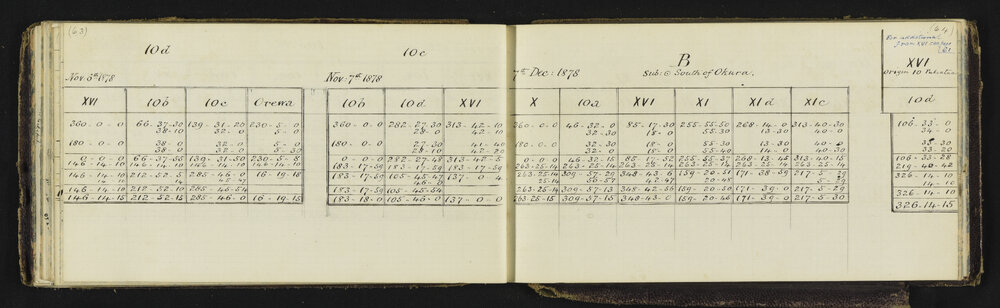 (63)
10d
Nov. 6th 1878
XVI 10b 10c Orewa
360-0-0 66-37-30 139-31-20 230-5-0
38-10 32-0 5-0
180-0-0 38-0 32-0 5-0
38-10 32-0 5-30
0-0-0 66-37-55 139-31-50 230-5-8
146-14-10 146-14-10 146-14-10 146-14-10
146-14-10 212-52-5 285-46-0 16-19-18
146-14-10 212-52-10 285-45-54
146-14-15 212-52-15 285-46-0 16-19-15
10c
Nov: 7th 1878
10b 10d XVI
360-0-0 282-27-30 313-42-10
28-0 42-10
180-0-0 27-30 41-40
28-10 42-20
0-0-0 282-27-48 313-42-5
183-17-59 183-17-59 183-17-59
183-17-59 105-45-47 137-0-4
46-0
183-17-59 105-45-54
183-18-0 105-46-0 137-0-0
B
7th Dec: 1878 Sub: South of Okura.
X 10a XVI XI XId XIc
360-0-0 46-32-0 85-17-30 255-55-50 268-14-0 313-40-30
32-30 18-0 55-30 13-30 40-0
180-0-0 32-30 18-0 55-30 13-30 40-0
32-0 18-0 55-40 14-0 40-30
0-0-0 46-32-15 85-17-52 255-55-37 268-13-45 313-40-15
263-25-14 263-25-14 263-25-14 263-25-14 263-25-14 263-25-14
263-25-14 309-57-29 348-43-6 159-20-51 171-38-59 217-5-29
263-25-14 309-57-13 348-42-56 159-20-50 171-39-0 217-5-29
263-25-15 309-57-15 348-43-0 159-20-45 171-39-0 217-5-30
(64)
For additional
from XVI see page
61
XVI
Origin 10
10d
106-33-0
34-0
33-30
33-20
106-33-28
219-40-42
326-14-10
326-14-10
326-14-15